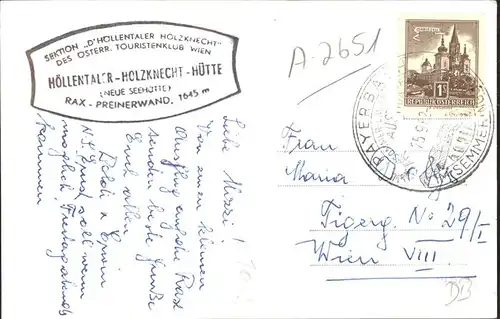 SEKTION „D'HÖLLENTALER HOLZKNECHT"
DES ÖSTERR. TOURISTENKLUB WIEN
HÖLLENTALER-HOLZKNECHT-HÜTTE
(NEUE SEEHÜTTE)
RAX - PREINERWAND, 1645 m
A-2651
1S
REPUBLIK ÖSTERREICH
PAYERBACH
SEMMERING
Liebe Mizzi!
Von einem schönen
Ausflug auf die Rax
senden beste Grüße
Euch allen
Poldi + Erwin
N.S. soll wenn
möglich Freitag abends
kommen
Frau
Maria
Tigerg. No 29/I
Wien VIII.